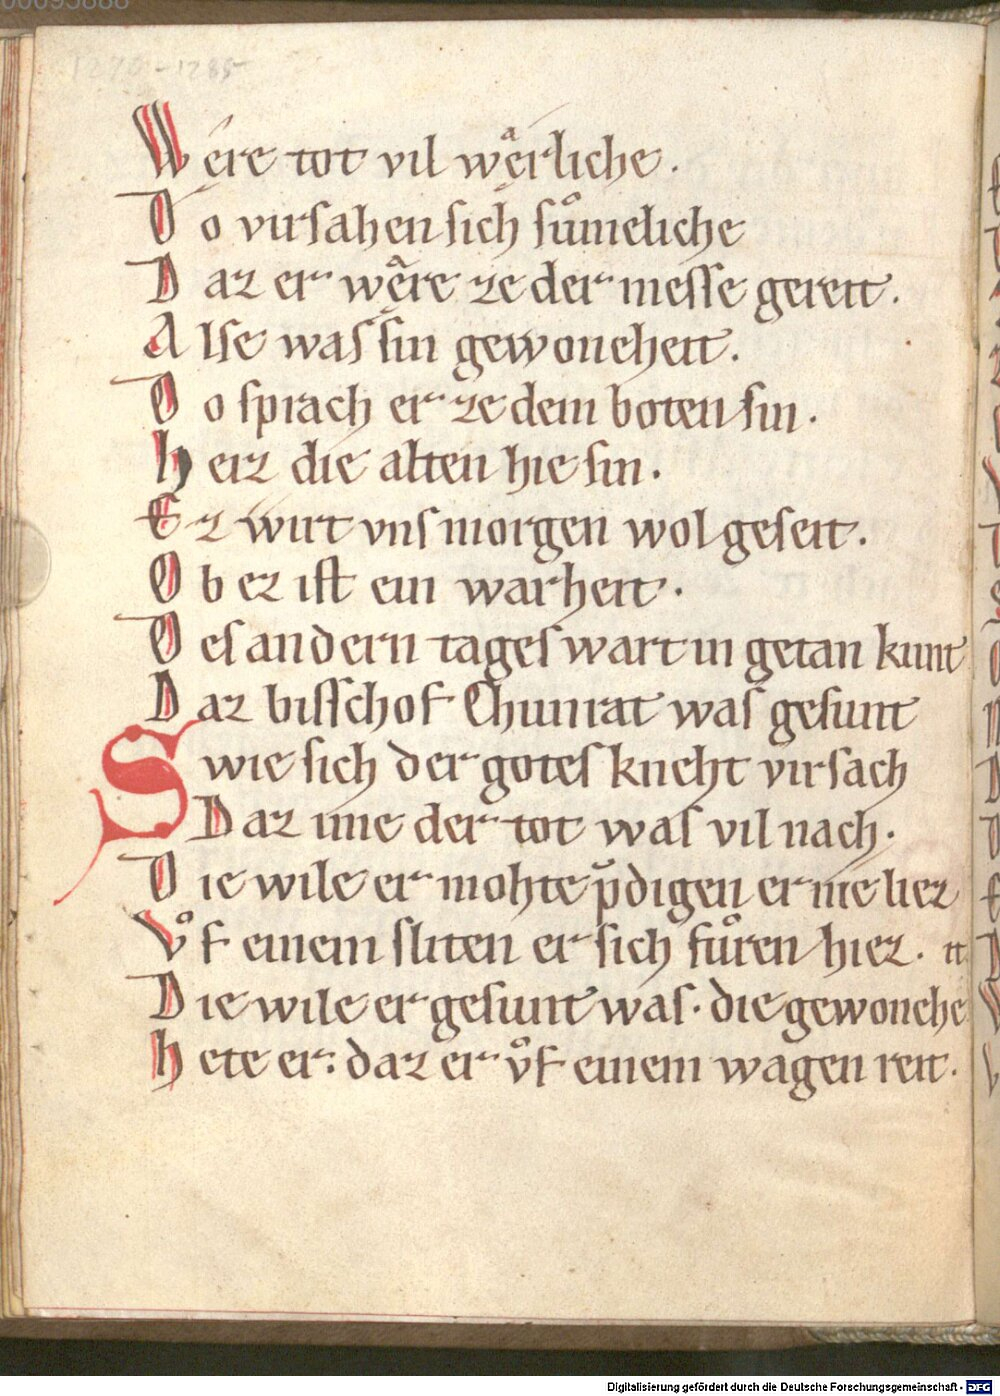 00095888
1270-1285
Were tot vil węͣrliche.
Do virſahen ſich ſuͦmeliche
Daz er węͣre ze der meſſe gereit.
Alſe was ſin gewoneheit.
Do ſprach er ze dem boten ſin.
heiz die alten hie ſin.
Ez wirt vnſ morgen wol geſeit.
Ob ez iſt ein warheit.
Deſ andern tageſ wart in getan kunt
Daz biſſchof Chunrat waſ geſunt
Swie ſich der goteſ kneht virſach
Daz ime der tot waſ vil nach.
Die wile er mohte p̄digen er nie liez
Vͦf einem ſliten er ſich fuͦren hiez. it
Die wile er geſunt waſ. die gewonehe
hete er: daz er vͦf einem wagen reit.
Digitalisierung gefördert durch die Deutsche Forschungsgemeinschaft - DFG